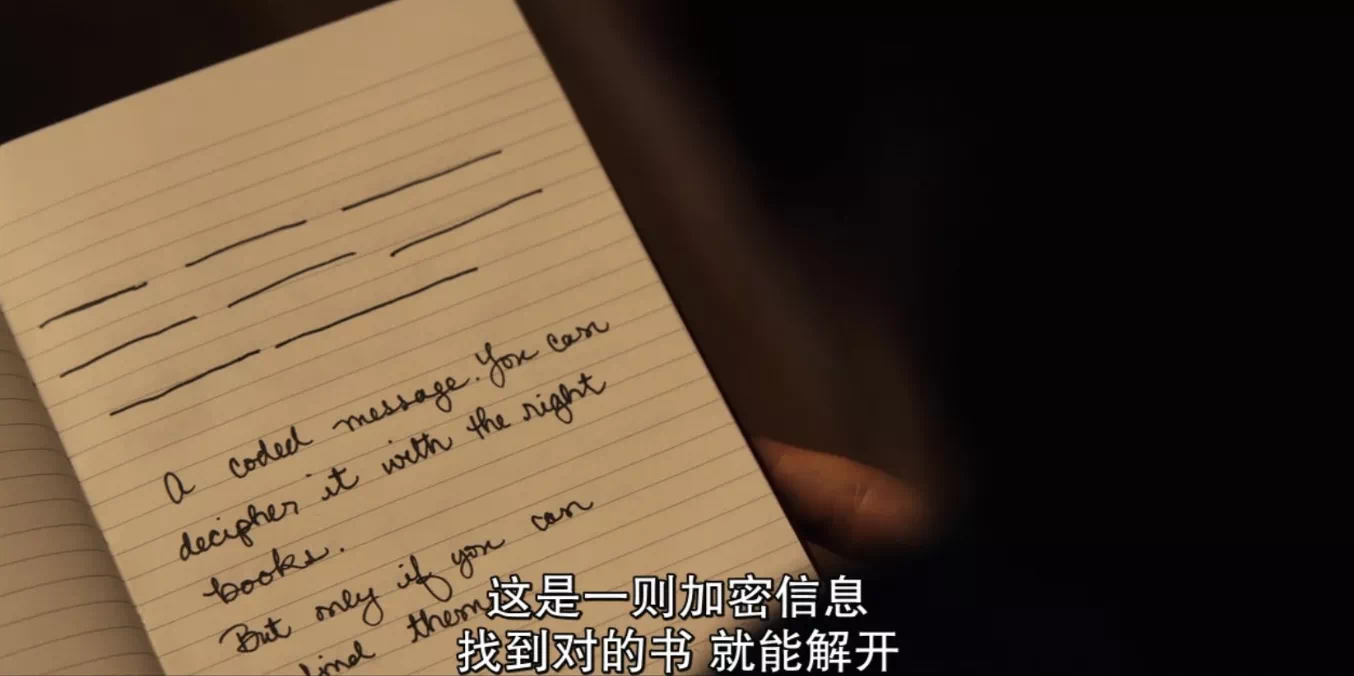 A coded message. You can
decipher it with the right
books.
But only if you can
find them
这是一则加密信息
找到对的书 就能解开